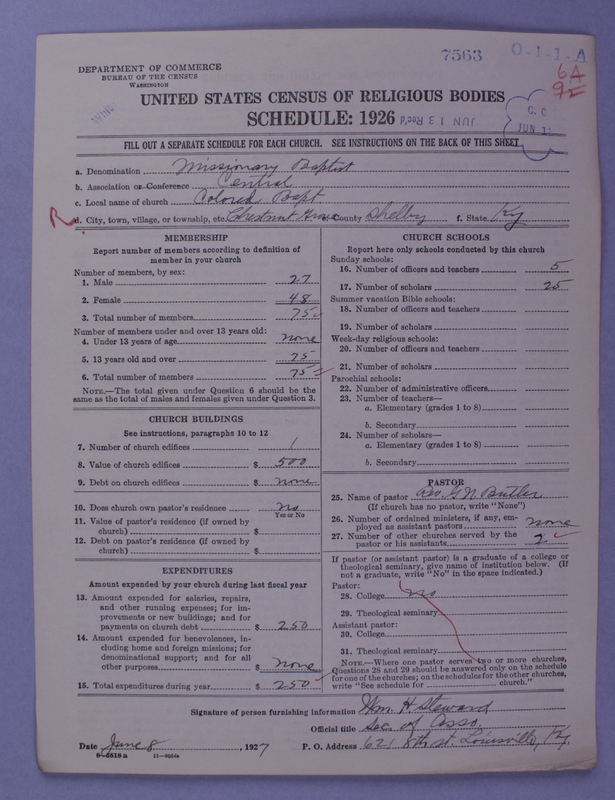 7563 O-1-1-A
DEPARTMENT OF COMMERCE
BUREAU OF THE CENSUS
WASHINGTON
6A
UNITED STATES CENSUS OF RELIGIOUS BODIES
SCHEDULE: 1926
JUN 13 Rec'd
C. C.
JUN 1
FILL OUT A SEPARATE SCHEDULE FOR EACH CHURCH. SEE INSTRUCTIONS ON THE BACK OF THIS SHEET
a. Denomination Missionary Baptist
b. Association or Conference Central
c. Local name of church Colored Bapt
R d. City, town, village, or township, etc. Chestnut Grove County Shelby f. State Ky
MEMBERSHIP
Report number of members according to definition of
member in your church
Number of members, by sex:
1. Male 27
2. Female 48
3. Total number of members 75
Number of members under and over 13 years old:
4. Under 13 years of age none
5. 13 years old and over 75
6. Total number of members 75
NOTE.—The total given under Question 6 should be
same as the total of males and females given under Question 3.
CHURCH BUILDINGS
See instructions, paragraphs 10 to 12
7. Number of church edifices 1
8. Value of church edifices $ 500
9. Debt on church edifices $ none
10. Does church own pastor's residence no
Yes or No
11. Value of pastor's residence (if owned by
church) $
12. Debt on pastor's residence (if owned by
church) $
EXPENDITURES
Amount expended by your church during last fiscal year
13. Amount expended for salaries, repairs,
and other running expenses; for im-
provements or new buildings; and for
payments on church debt $ 250
14. Amount expended for benevolences, in-
cluding home and foreign missions; for
denominational support; and for all
other purposes $ none
15. Total expenditures during year $ 250
CHURCH SCHOOLS
Report here only schools conducted by this church
Sunday schools:
16. Number of officers and teachers 5
17. Number of scholars 25
Summer vacation Bible schools:
18. Number of officers and teachers
19. Number of scholars
Week-day religious schools:
20. Number of officers and teachers
21. Number of scholars
Parochial schools:
22. Number of administrative officers
23. Number of teachers—
a. Elementary (grades 1 to 8)
b. Secondary
24. Number of scholars—
a. Elementary (grades 1 to 8)
b. Secondary
PASTOR
25. Name of pastor Rev G N Butler
(If church has no pastor, write "None")
26. Number of ordained ministers, if any, em-
ployed as assistant pastors none
27. Number of other churches served by the
pastor or his assistants 2
If pastor (or assistant pastor) is a graduate of a college or
theological seminary, give name of institution below. (If
not a graduate, write "No" in the space indicated.)
Pastor:
28. College no
29. Theological seminary
Assistant pastor:
30. College
31. Theological seminary
NOTE.—Where one pastor serves two or more churches,
Questions 28 and 29 should be answered only on the schedule
for one of the churches; on the schedules for the other churches,
write "See schedule for church."
Signature of person furnishing information Wm. H Steward
Official title Sec. of Asso.
Date June 8, 1927 P. O. Address 621 8th st. Louisville, Ky.
8-5518 a